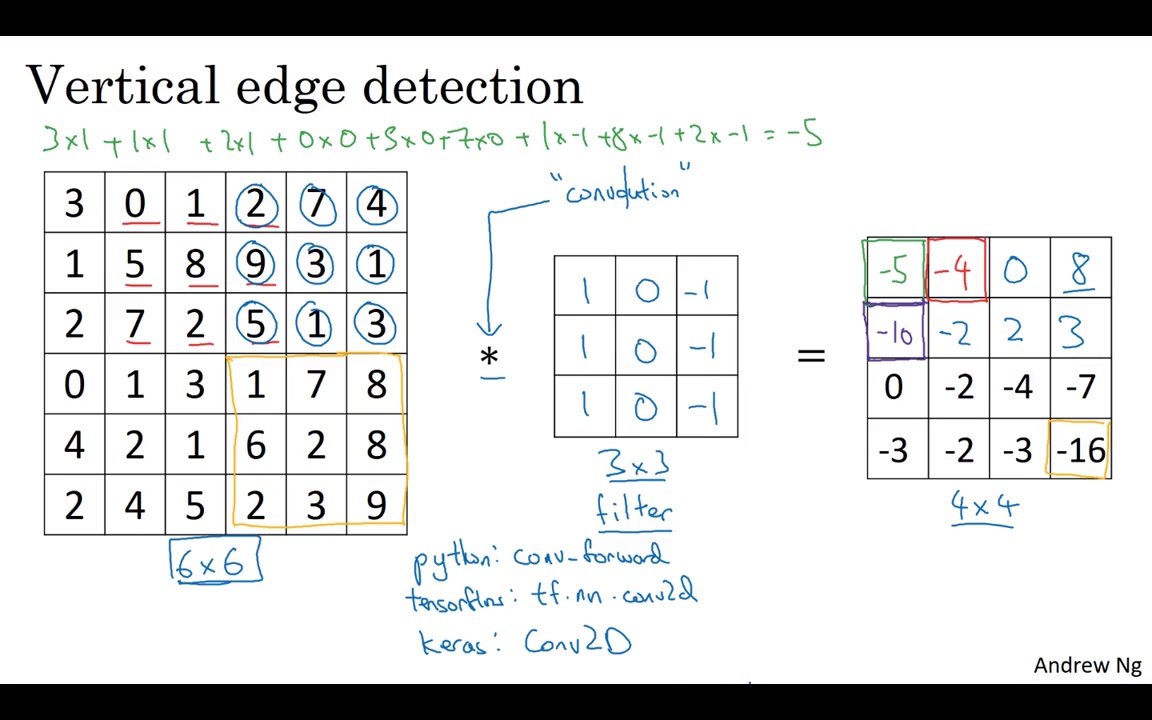 Vertical edge detection
3x1 + 1x1 + 2x1 + 0x0 + 5x0 + 7x0 + 1x-1 + 8x-1 + 2x-1 = -5
"convolution"
3 0 1 2 7 4
1 5 8 9 3 1
2 7 2 5 1 3
0 1 3 1 7 8
4 2 1 6 2 8
2 4 5 2 3 9
6x6
*
1 0 -1
1 0 -1
1 0 -1
3x3
filter
=
-5 -4 0 8
-10 -2 2 3
0 -2 -4 -7
-3 -2 -3 -16
4x4
python: conv-forward
tensorflow: tf.nn.conv2d
keras: Conv2D
Andrew Ng